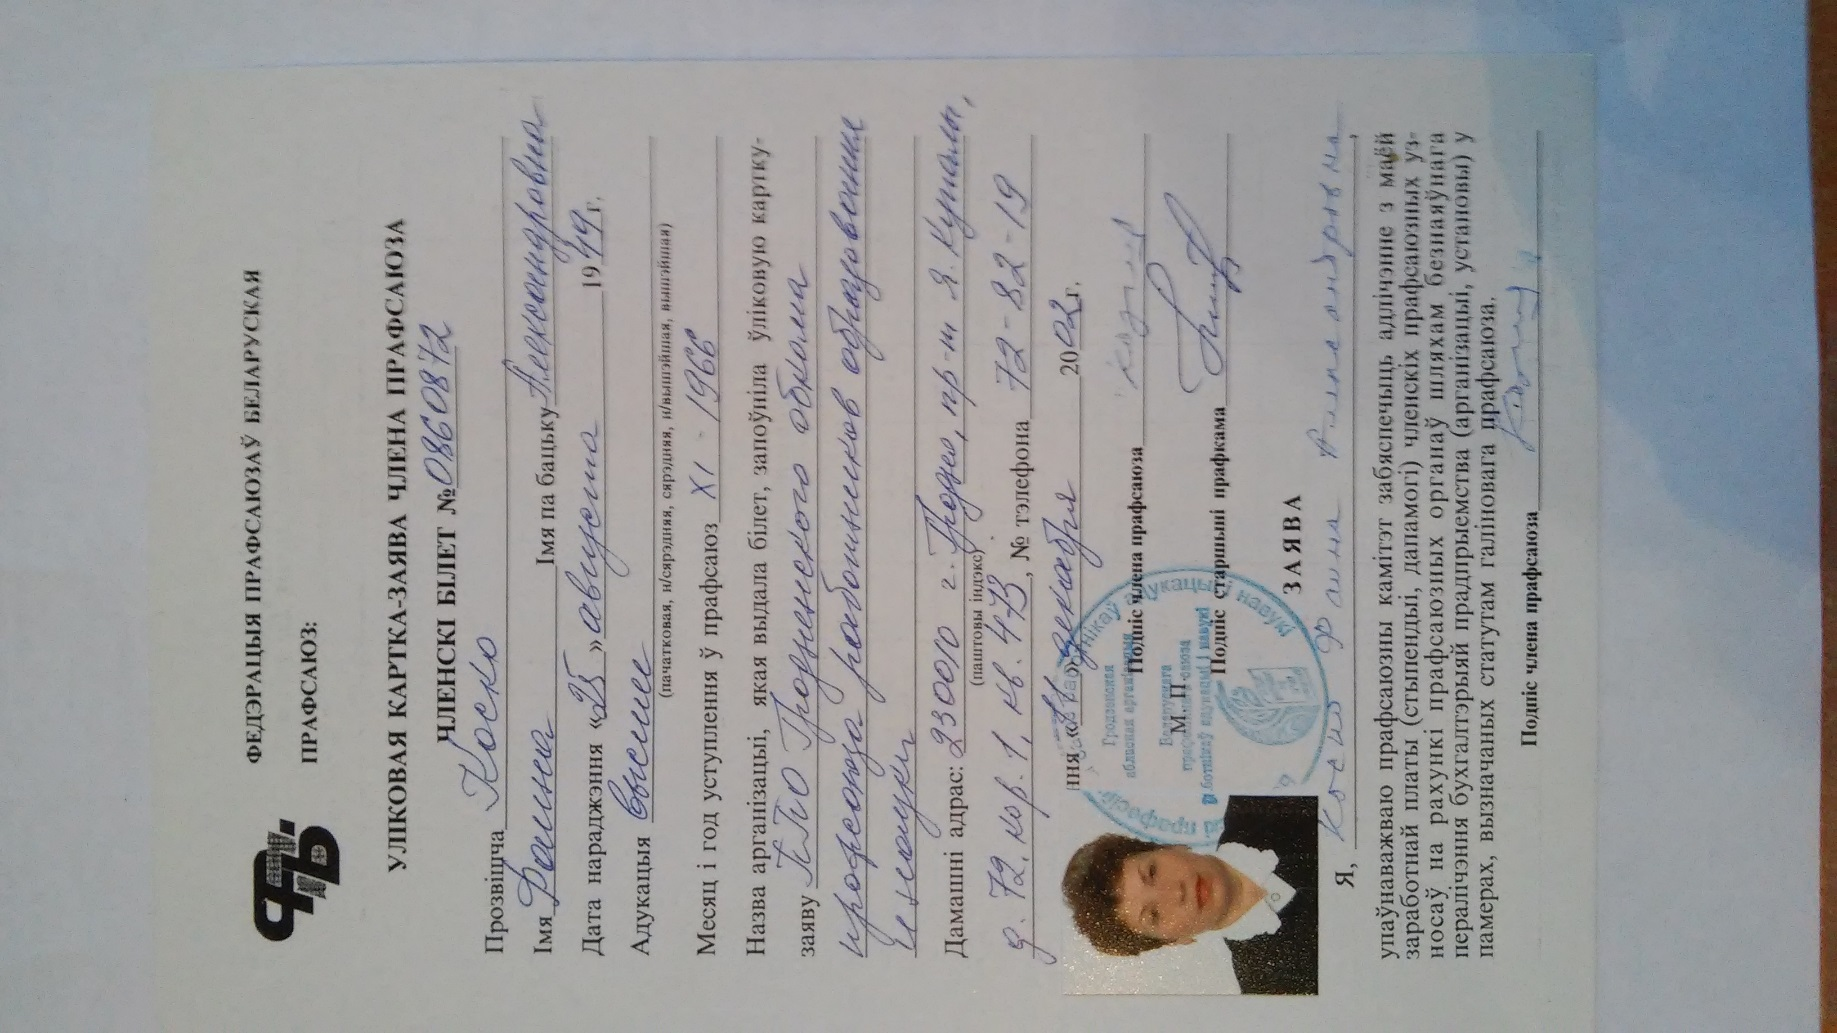 ФЕДЭРАЦЫЯ ПРАФСАЮЗАЎ БЕЛАРУСКАЯ
ПРАФСАЮЗ:
УЛІКОВАЯ КАРТКА-ЗАЯВА ЧЛЕНА ПРАФСАЮЗА
ЧЛЕНСКІ БІЛЕТ № 0860872
Прозвішча Коско
Імя Фаина Імя па бацьку Александровна
Дата нараджэння «25» августа 1949 г.
Адукацыя высшее
(пачатковая, н/сярэдняя, сярэдняя, н/вышэйшая, вышэйшая)
Месяц і год уступлення ў прафсаюз XI - 1966
Назва арганізацыі, якая выдала білет, запоўніла ўліковую картку-
заяву ППО Гродненского обкома
профсоюза работников образования
и науки
Дамашні адрас: 230010 г. Гродно, пр-т Я. Купалы,
(паштовы індэкс)
д. 72, кор. 1, кв. 473, № тэлефона 72-82-19
ння декабря 2002 г.
Подпіс члена прафсаюза
М. П. Подпіс старшыні прафкама
Гродзенская
абласная арганізацыя
Беларускага
прафсаюза
работнікаў адукацыі і навукі
ЗАЯВА
Я, Коско Фаина Александровна,
упаўнаважваю прафсаюзны камітэт забяспечыць адлічэнне з маёй
заработнай платы (стыпендыі, дапамогі) членскіх прафсаюзных уз-
носаў на рахункі прафсаюзных органаў шляхам безнаяўнага
пералічэння бухгалтэрыяй прадпрыемства (арганізацыі, установы) у
памерах, вызначаных статутам галіновага прафсаюза.
Подпіс члена прафсаюза